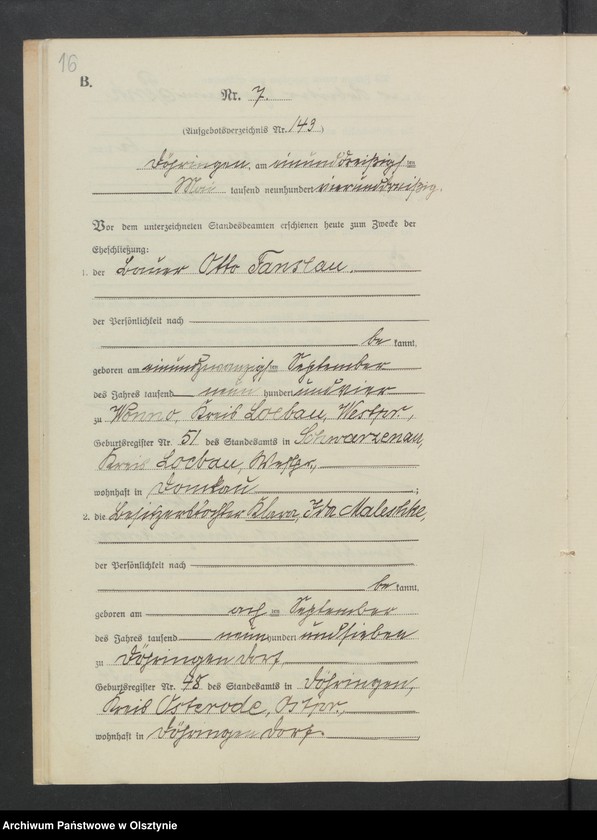 16
B.
Nr. 7.
(Aufgebotsverzeichnis Nr. 143)
Döhringen, am einunddreißigsten
Mai tausend neunhundert vierunddreißig.
Vor dem unterzeichneten Standesbeamten erschienen heute zum Zwecke der
Eheschließung:
1. der Bauer Otto Fanslau.
der Persönlichkeit nach
be kannt,
geboren am einundzwanzigsten September
des Jahres tausend neun hundert und vier
zu Wonno, Kreis Loebau, Westpr.,
Geburtsregister Nr. 51 des Standesamts in Schwarzenau,
Kreis Loebau, Westpr.,
wohnhaft in Domkau ;
2. die Besitzerstochter Klara, Ida Maleschke,
der Persönlichkeit nach
be kannt,
geboren am achten September
des Jahres tausend neun hundert und sieben
zu Döhringen Dorf,
Geburtsregister Nr. 48 des Standesamts in Döhringen,
Kreis Osterode, Ostpr.,
wohnhaft in Döhringen Dorf.
Archiwum Państwowe w Olsztynie